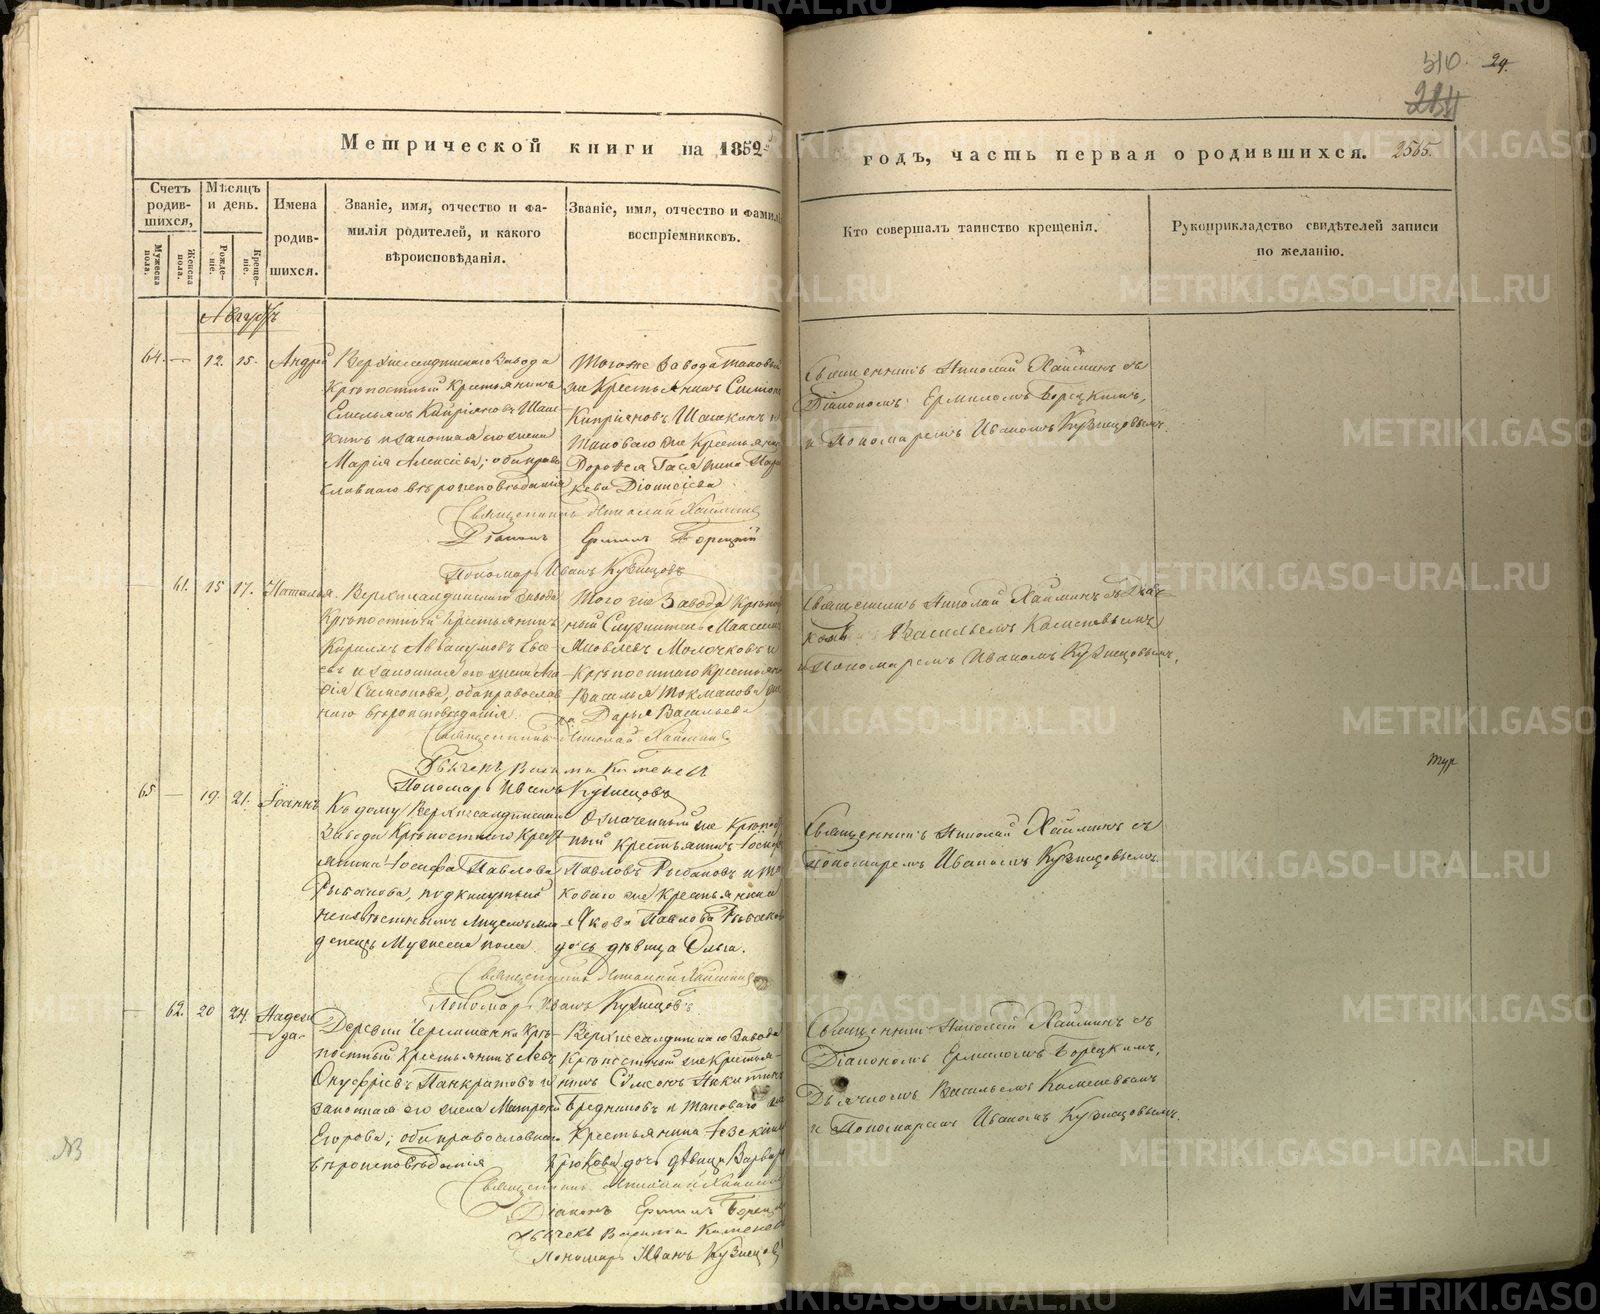 510. 24.
Метрической книги на 1852
годъ, часть первая о родившихся. 2565.
Счетъ родив-шихся,
Мужеска пола.
Женска пола.
Мѣсяцъ и день.
Рожде-ніе.
Креще-ніе.
Имена родив-шихся.
Званіе, имя, отчество и фа-
милія родителей, и какого
вѣроисповѣданія.
Званіе, имя, отчество и фамилі
воспріемниковъ.
Кто совершалъ таинство крещенія.
Рукоприкладство свидѣтелей записи
по желанію.
Августъ
64. — 12. 15. Андрей
Верхнесалдинскаго Завода
Крѣпостный Крестьянинъ
Емельянъ Кипріяновъ
и законная его жена
Марія Алексіева; оба право
славнаго вѣроисповѣданія
Тогоже Завода таковый
же Крестьянинъ Симеонъ
Кипріяновъ
таковаго же Крестьянина
Дорофея
Діонисіева
Священникъ Николай Хайминъ съ
Діакономъ Ермиломъ Борецкимъ,
и Пономаремъ Иваномъ Кузнецовымъ.
Священникъ Николай Хайминъ
Діаконъ Ермилъ Борецкій
Пономарь Иванъ Кузнецовъ
— 61. 15 17. Наталья.
Верхнесалдинскаго Завода
Крѣпостный Крестьянинъ
Кириллъ Аввакумовъ Евсе
евъ и законная его жена Ага
ѳія Симеонова, оба православ
наго вѣроисповѣданія
Того же Завода Крѣпост
ный Служитель Максимъ
Яковлевъ Молочковъ и
Крѣпостнаго Крестьянина
Василья Токманова же
на Дарья Васильева
Священникъ Николай Хайминъ съ Дьяч
комъ Васильемъ Каменевымъ
и Пономаремъ Иваномъ Кузнецовымъ.
Священникъ Николай Хайминъ
Дьячекъ Василій Каменевъ
Пономарь Иванъ Кузнецовъ
65 — 19. 21. Іоаннъ
Къ дому Верхнесалдинскаго
Завода Крѣпостнаго Кресть
янина Іосифа Павлова
Рыбакова, подкинутый
неизвѣстнымъ лицемъ мла
денецъ Мужеска пола.
Означенный же Крѣпост
ный Крестьянинъ Іосифъ
Павловъ Рыбаковъ и та
коваго же Крестьянина
Якова Павлова Рыбакова
дочь дѣвица Ольга.
Священникъ Николай Хайминъ съ
Пономаремъ Иваномъ Кузнецовымъ.
Священникъ Николай Хайминъ
Пономарь Иванъ Кузнецовъ
— 62. 20 24. Надеж
да
Деревни Черемшанки Крѣ
постный Крестьянинъ Левъ
Онуфріевъ Панкратовъ и
законная его жена Матрона
Егорова; оба православнаго
вѣроисповѣданія
Верхнесалдинскаго Завода
Крѣпостный же Крестья
нинъ Симеонъ Никитинъ
Бредниковъ и таковаго же
Крестьянина
Крюкова дочь дѣвица Варвара
Священникъ Николай Хайминъ съ
Діакономъ Ермиломъ Борецкимъ,
Дьячкомъ Васильемъ Каменевымъ
и Пономаремъ Иваномъ Кузнецовымъ.
Священникъ Николай Хайминъ
Діаконъ Ермилъ Борецкій
Дьячекъ Василій Каменевъ
Пономарь Иванъ Кузнецовъ
METRIKI.GASO-URAL.RU